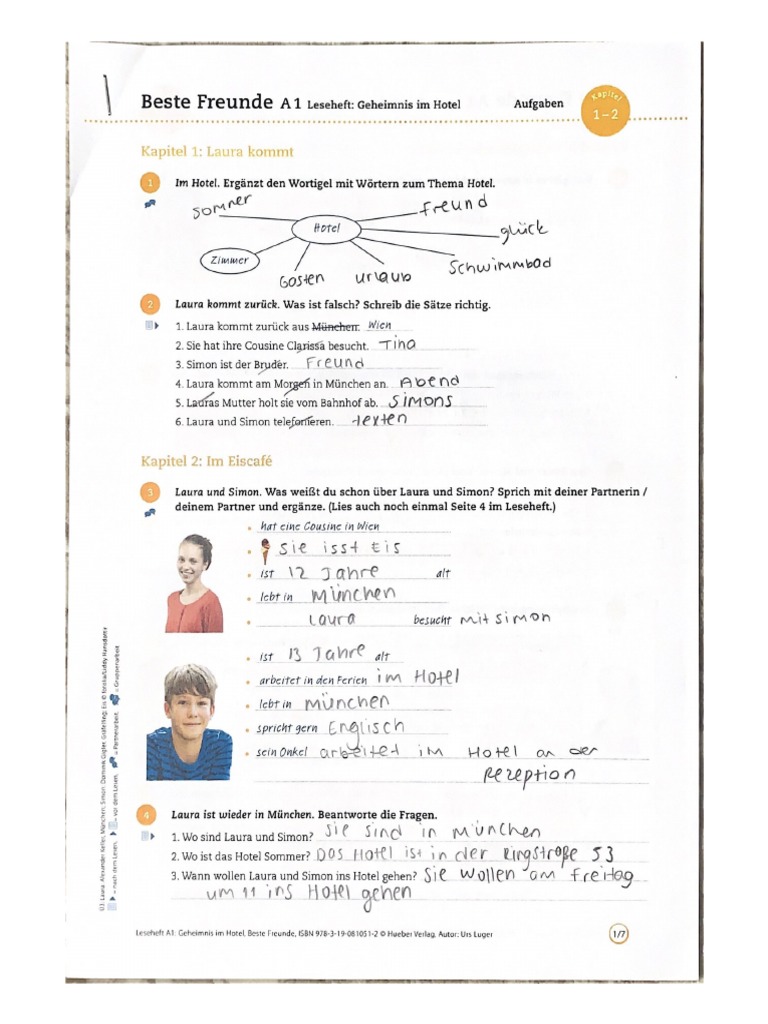 Beste Freunde A1 Leseheft: Geheimnis im Hotel Aufgaben Kapitel 1–2
Kapitel 1: Laura kommt
1 Im Hotel. Ergänzt den Wortigel mit Wörtern zum Thema Hotel.
sommer freund
Hotel glück
Zimmer Schwimmbad
Gosten urlaub
2 Laura kommt zurück. Was ist falsch? Schreib die Sätze richtig.
1. Laura kommt zurück aus München. Wien
2. Sie hat ihre Cousine Clarissa besucht. Tina
3. Simon ist der Bruder. Freund
4. Laura kommt am Morgen in München an. Abend
5. Lauras Mutter holt sie vom Bahnhof ab. simons
6. Laura und Simon telefonieren. texten
Kapitel 2: Im Eiscafé
3 Laura und Simon. Was weißt du schon über Laura und Simon? Sprich mit deiner Partnerin /
deinem Partner und ergänze. (Lies auch noch einmal Seite 4 im Leseheft.)
• hat eine Cousine in Wien
• Sie isst Eis
• ist 12 Jahre alt
• lebt in München
• Laura besucht mit simon
• ist 13 Jahre alt
• arbeitet in den Ferien im Hotel
• lebt in München
• spricht gern Englisch
• sein Onkel arbeitet im Hotel an der
Rezeption
4 Laura ist wieder in München. Beantworte die Fragen.
1. Wo sind Laura und Simon? Sie sind in München
2. Wo ist das Hotel Sommer? Das Hotel ist in der Ringstroße 53
3. Wann wollen Laura und Simon ins Hotel gehen? Sie wollen am freitag
um 11 ins Hotel gehen
Leseheft A1: Geheimnis im Hotel, Beste Freunde, ISBN 978-3-19-081051-2 © Hueber Verlag, Autor: Urs Luger
1/7
= nach dem Lesen. = vor dem Lesen. = Partnerarbeit. = Gruppenarbeit